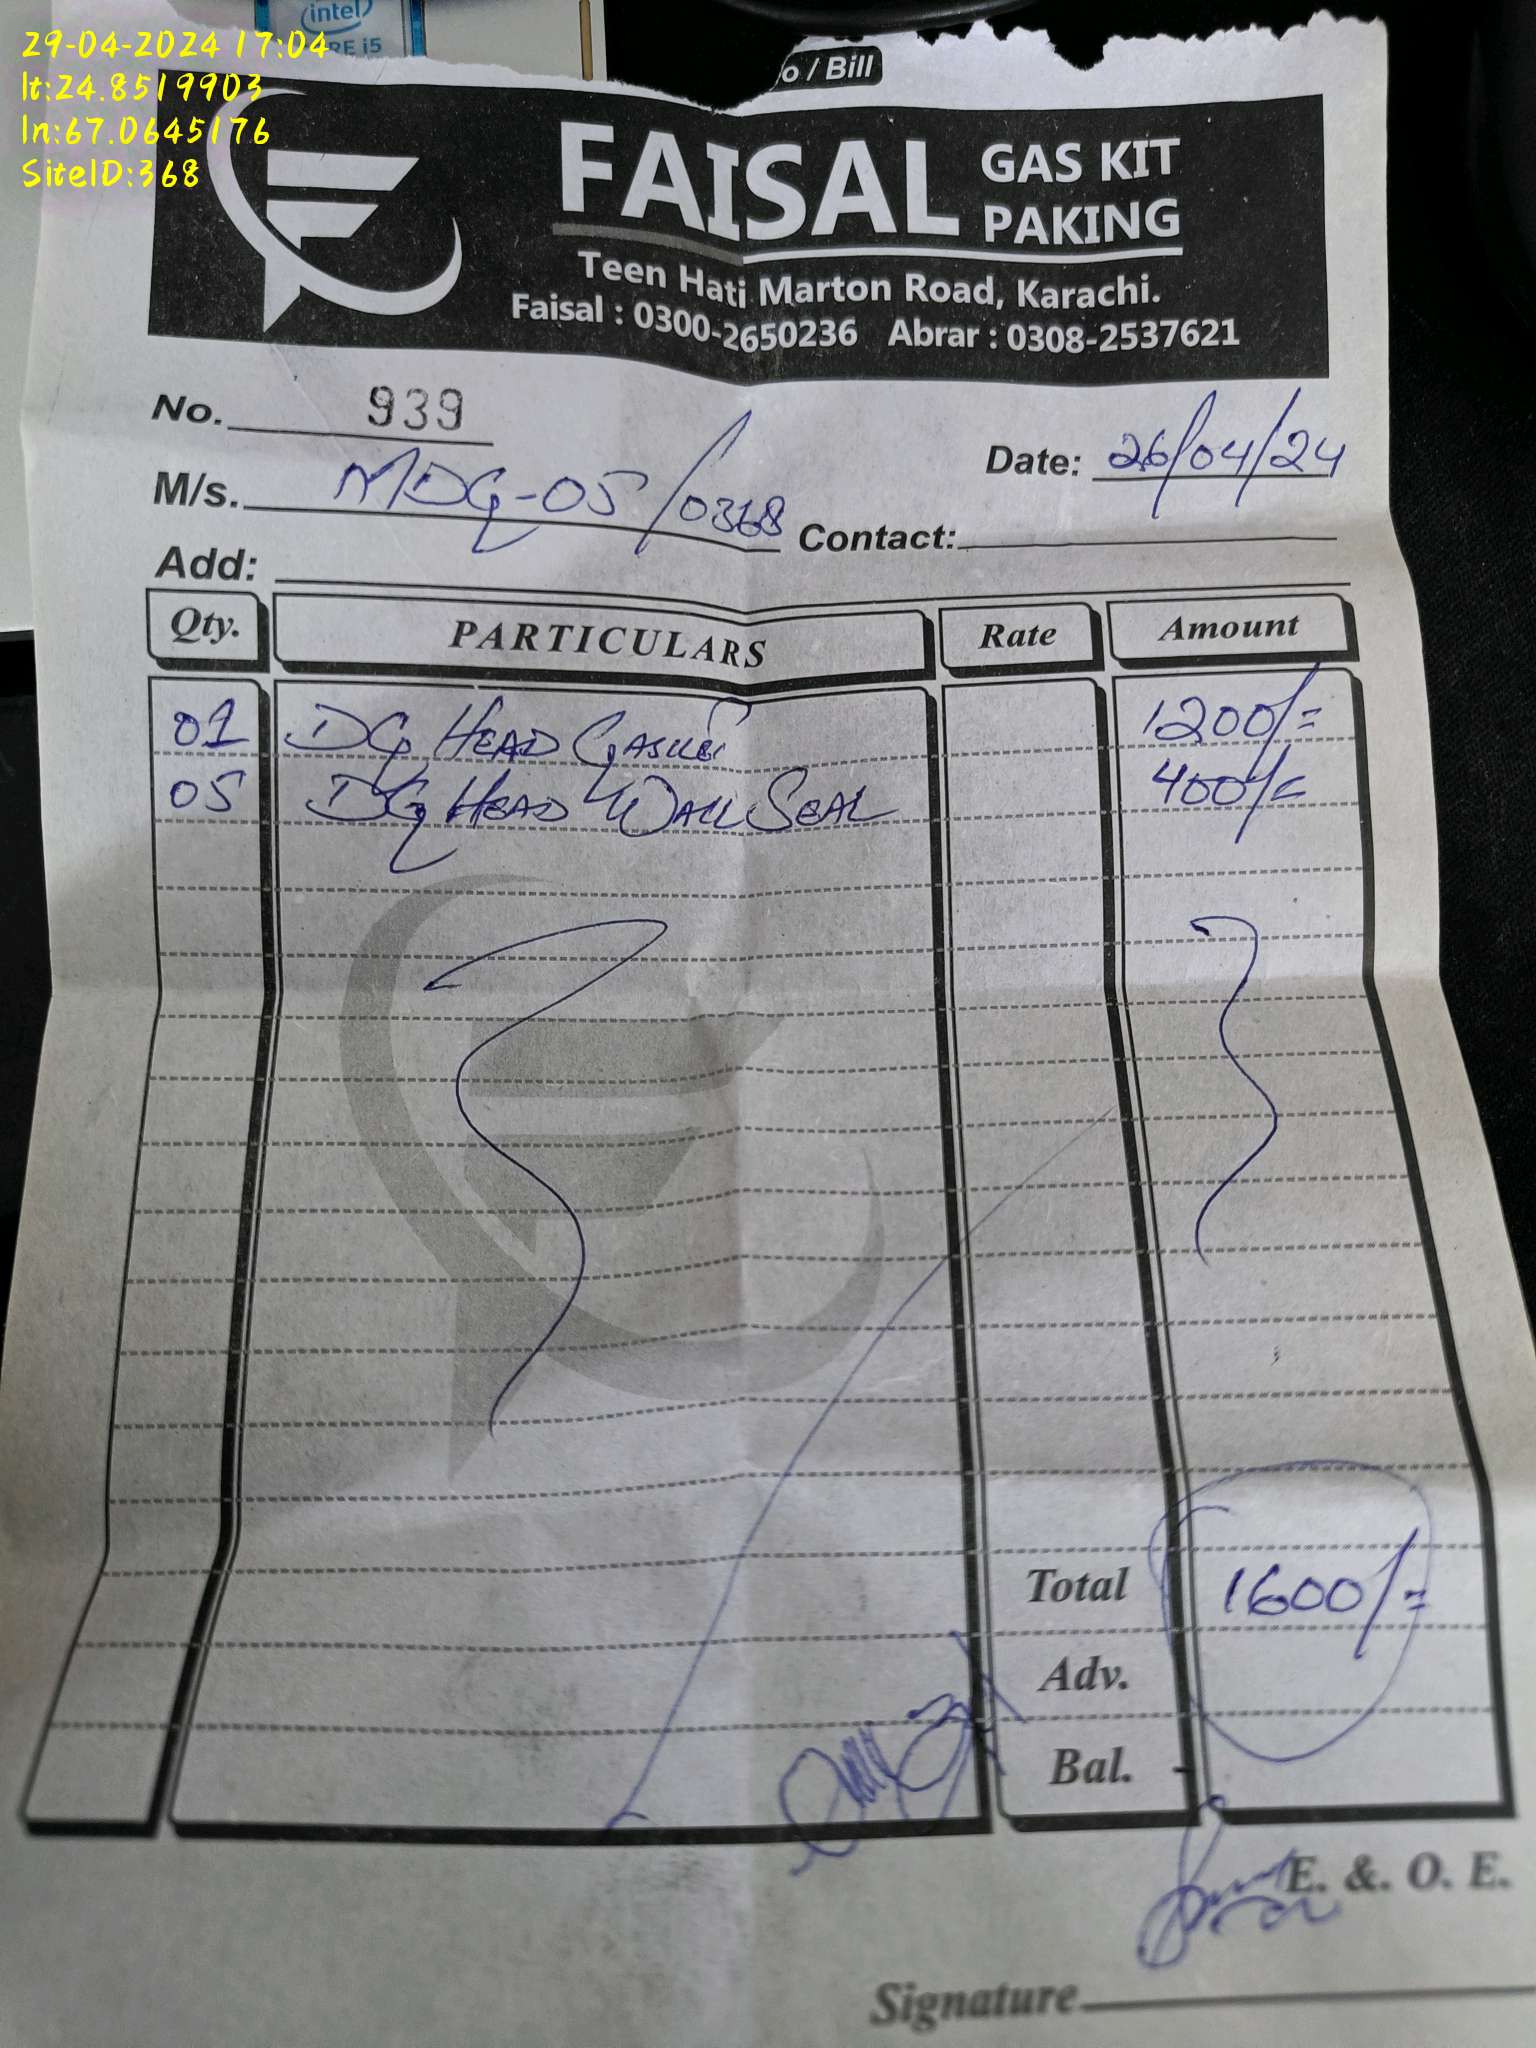 29-04-2024 17:04
lt:24.8519903
ln:67.0645176
SiteID:368
intel
RE i5
o / Bill
FAISAL GAS KIT PAKING
Teen Hati Marton Road, Karachi.
Faisal : 0300-2650236 Abrar : 0308-2537621
No. 939
Date: 26/04/24
M/s. MDG-05/0368 Contact:
Add:
Qty. PARTICULARS Rate Amount
01 DG HEAD GASKET 1200/=
05 DG HEAD WALL SEAL 400/=
Total 1600/=
Adv.
Bal.
E. &. O. E.
Signature